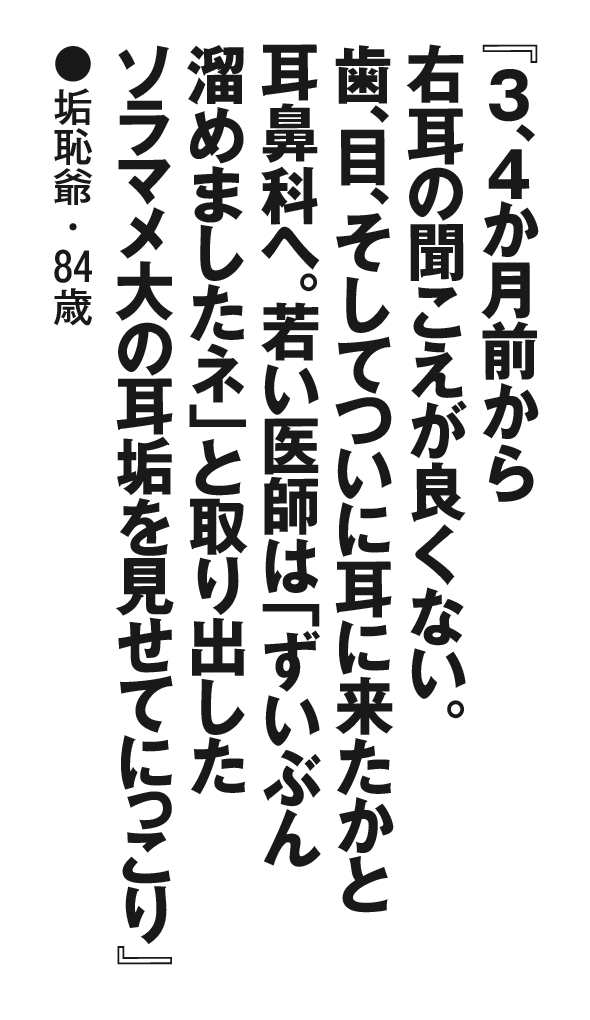 『3、4か月前から
右耳の聞こえが良くない。
歯、目、そしてついに耳に来たかと
耳鼻科へ。若い医師は「ずいぶん
溜めましたネ」と取り出した
ソラマメ大の耳垢を見せてにっこり』
●垢恥爺・84歳